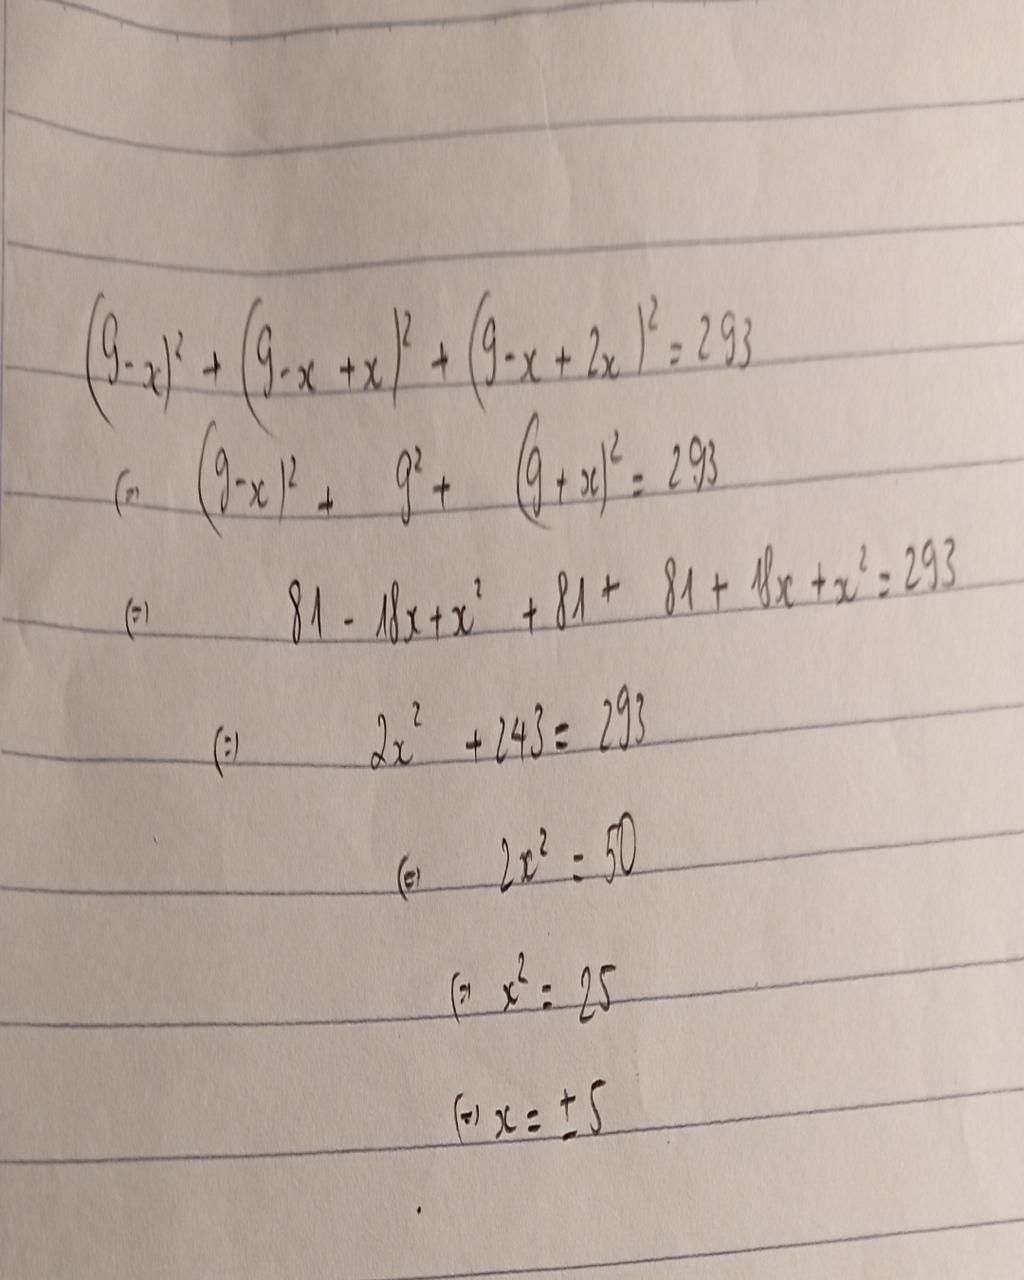 (9-x)² + (9-x+x)² + (9-x+2x)² = 293
(=) (9-x)² + 9² + (9+x)² = 293
(=) 81 - 18x + x² + 81 + 81 + 18x + x² = 293
(=) 2x² + 243 = 293
(=) 2x² = 50
(=) x² = 25
(=) x = ±5